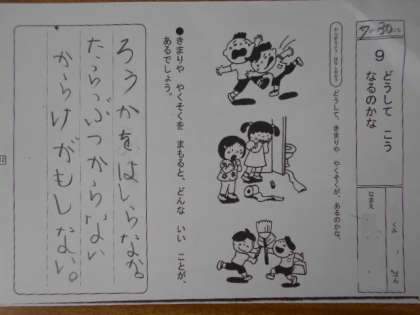 9 どうして こう
なるのかな
なまえ
くみ
ばん
どうして、きまりや やくそくが、あるのかな。
●きまりや やくそくを まもると、どんな いい ことが、
あるでしょう。
ろうかをはしらなか
たらぶつからない
からけがもしない。